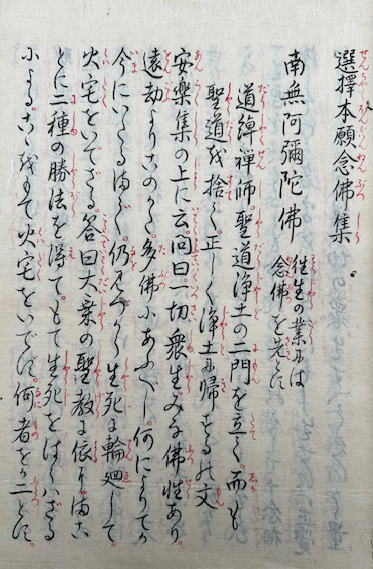 選擇本願念佛集
南無阿彌陀佛 往生の業には
念佛を先とす
道綽禪師。聖道浄土の二門を立て。而も
聖道を捨て。正しく浄土に歸するの文
安樂集の上に云。問曰。一切衆生みな佛性あり。
遠劫よりこのかた多佛にあふべし。何によりてか
今にいたるまで。仍みづから生死に輪廻して。
火宅をいでざる。答曰大乗の聖教に依に。まこ
とに二種の勝法を得て。もて生死をはらはざる
による。こゝをもて火宅をいでず。何者をか二とす。